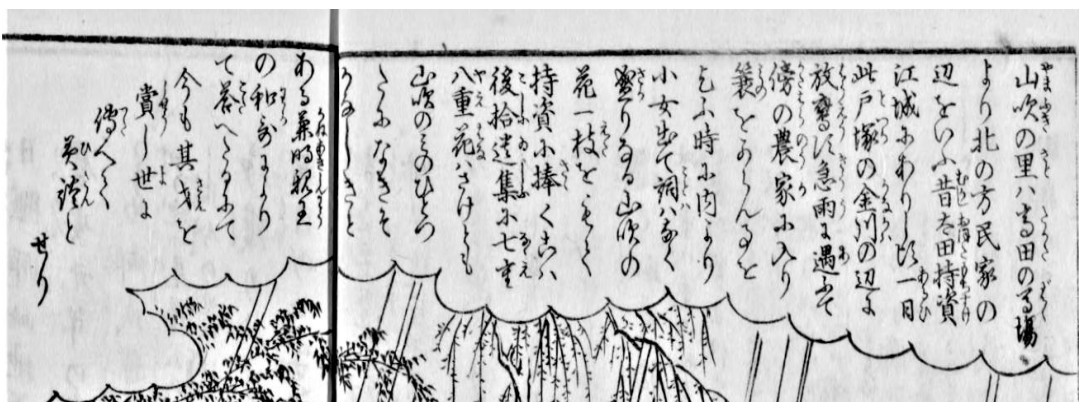 山吹の里ハ高田の馬場
より北の方民家の
辺をいふ昔太田持資
江城にありし頃一日
此戸塚の金川の辺に
放鷹し急雨に遇ふて
傍の農家に入り
蓑をからん事を
乞ふ時に内より
小女出て詞ハなく
盛りなる山吹の
花一枝をもて
持資に捧く是ハ
後拾遺集に七重
八重花ハさけとも
山吹のみのひとつ
たになきそ
かなしきと
ある兼明親王
の和歌により
て答へたるにて
今も其才を
賞し世に
傳へて
美談と
せり